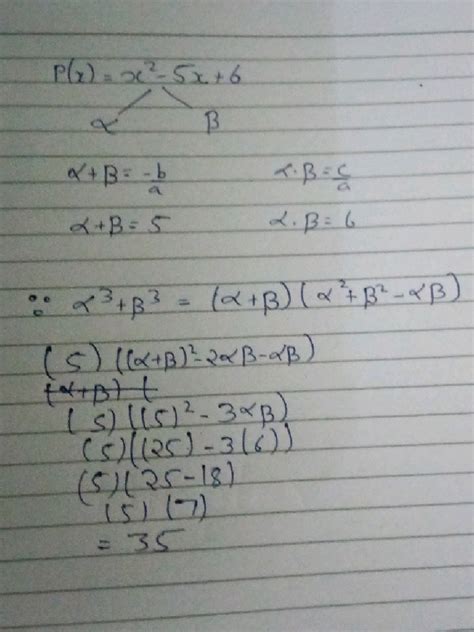 P(x) = x² - 5x + 6
α β
α + β = -b/a α·β = c/a
α + β = 5 α·β = 6
∵ α³ + β³ = (α + β) (α² + β² - αβ)
(5) ((α + β)² - 2αβ - αβ)
(α + β) (
(5) ((5)² - 3αβ)
(5) ((25) - 3(6))
(5) (25 - 18)
(5) (7)
= 35